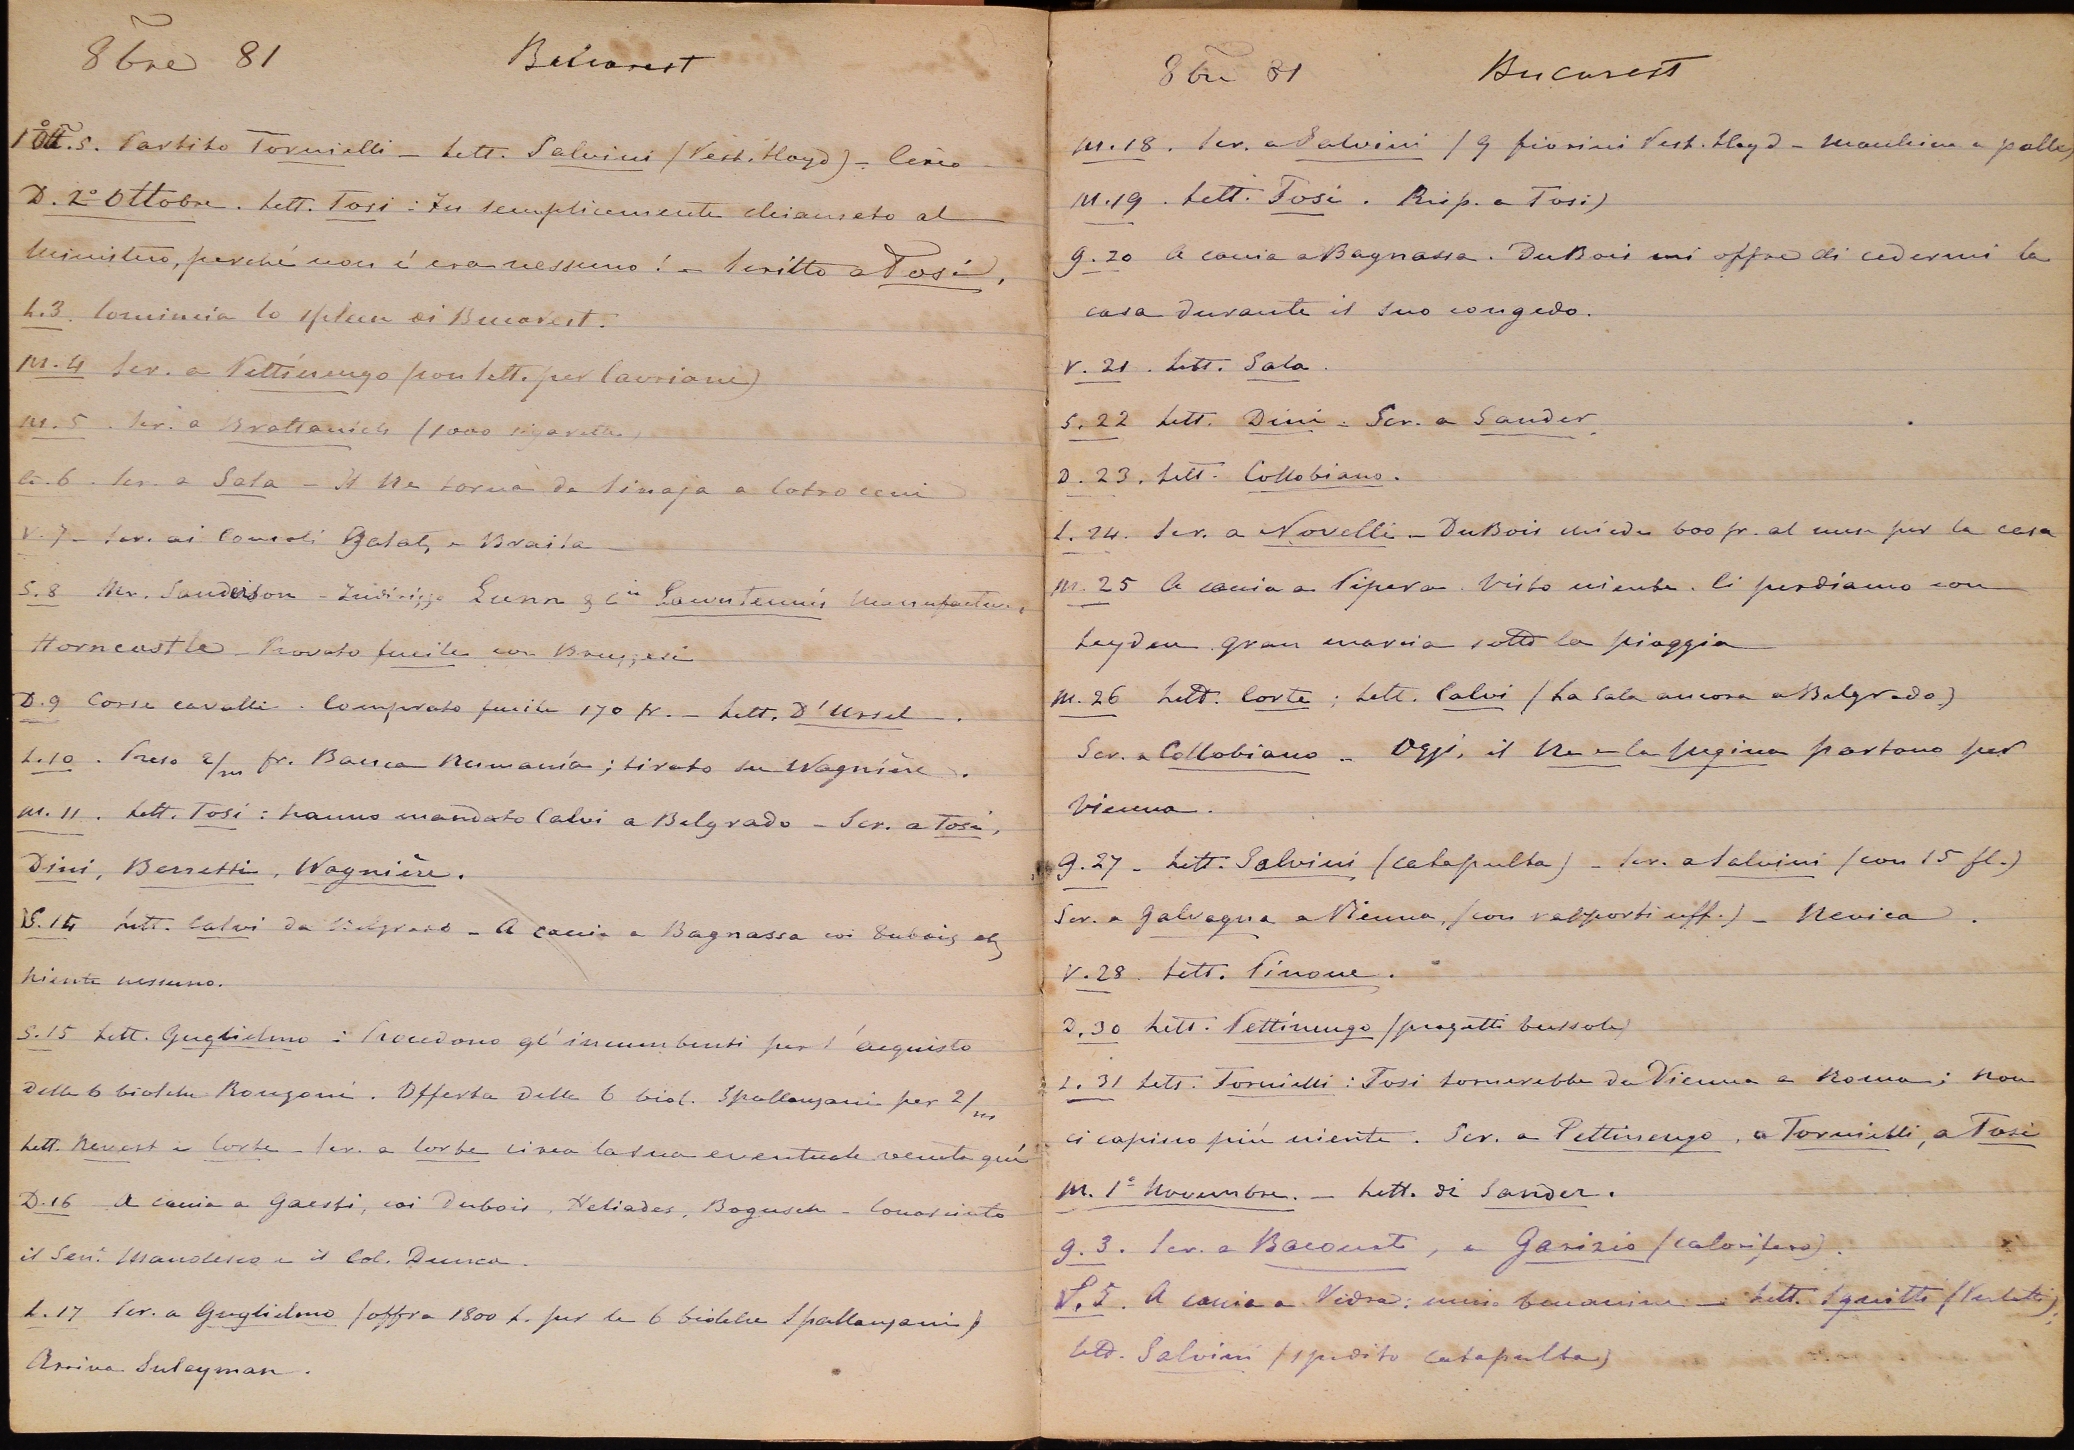 8bre 81 Bucarest
1º Ott. S. Partito Tornielli - Lett. Salvini (Pest. Lloyd) - Circo
D. 2º Ottobre. Lett. Tosi: Fu semplicemente chiamato al
Ministero, perché non c'era nessuno! - Scritto a Tosi.
L. 3. Comincia lo spleen di Bucarest.
M. 4 Scr. a Pettinengo (con lett. per Cavriani)
M. 5. Scr. a Brattanich (1000 sigarette)
G. 6. Scr. a Sala - Il Re torna da Sinaja a Cotroceni
V. 7 - Scr. ai Consoli Galatz e Braila -
S. 8 Mr. Sanderson - Indirizzo Lunn & Cie Lawntennis Manufacture,
Horncastle - Provato fucile con Bruzzesi
D. 9 Corse cavalli. Comprato fucile 170 fr. - Lett. D'Ursel -.
L. 10. Preso 2/m fr. Banca Rumania; tirato su Wagnière.
M. 11. Lett. Tosi: hanno mandato Calvi a Belgrado - Scr. a Tosi,
Dini, Berretti, Wagnière.
14 Lett. Calvi da Belgrado - A caccia a Bagnassa coi Dubois etc
niente nessuno.
S. 15 Lett. Guglielmo: Procedono gl'incumbenti per l'acquisto
delle 6 biolche Rongoni. Offerta delle 6 biol. Spallanzani per 2/m
Lett. Revest e Corte - Scr. a Corte circa la sua eventuale venuta quì
D. 16 A caccia a Gaesti, coi Dubois, Heliades, Bogusch - Conosciuto
il Sen. Mandesco e il Col. Dunca.
L. 17 Scr. a Guglielmo (offra 1800 L. per le 6 biolche Spallanzani)
Arriva Suleyman.
8bre 81 Bucarest
M. 18. Scr. a Salvini (9 fiorini Pest. Lloyd - Macchina a palle)
M. 19. Lett. Tosi. Risp. a Tosi)
G. 20 A caccia a Bagnassa. DuBois mi offre di cedermi la
casa durante il suo congedo.
V. 21. Lett. Sala.
S. 22 Lett. Dini. Scr. a Sander.
D. 23. Lett. Collobiano.
L. 24. Scr. a Novelli - DuBois chiede 600 fr. al mese per la casa
M. 25 A caccia a Pipera. Visto niente. Ci perdiamo con
Leyden gran marcia sotto la pioggia
M. 26 Lett. Corte; Lett. Calvi (La Sala ancora a Belgrado)
Scr. a Collobiano - Oggi, il Re e la Regina partono per
Vienna.
G. 27 - Lett. Salvini (catapulta) - Scr. a Salvini (con 15 fl.)
Scr. a Galvagna a Vienna, (con rapporti uff.) - Nevica.
V. 28. Lett. Pinone.
D. 30 Lett. Pettinengo (progetti bussole)
L. 31 Lett. Tornielli: Tosi tornerebbe da Vienna a Roma; non
ci capisco più niente. Scr. a Pettinengo, a Tornielli, a Tosi
M. 1º Novembre. - Lett. di Sander.
G. 3. Scr. a Bacourt, a Garizio (calorifero).
S. 5. A caccia a Vidra: - Lett. Squitti
Lett. Salvini (spedito catapulta)